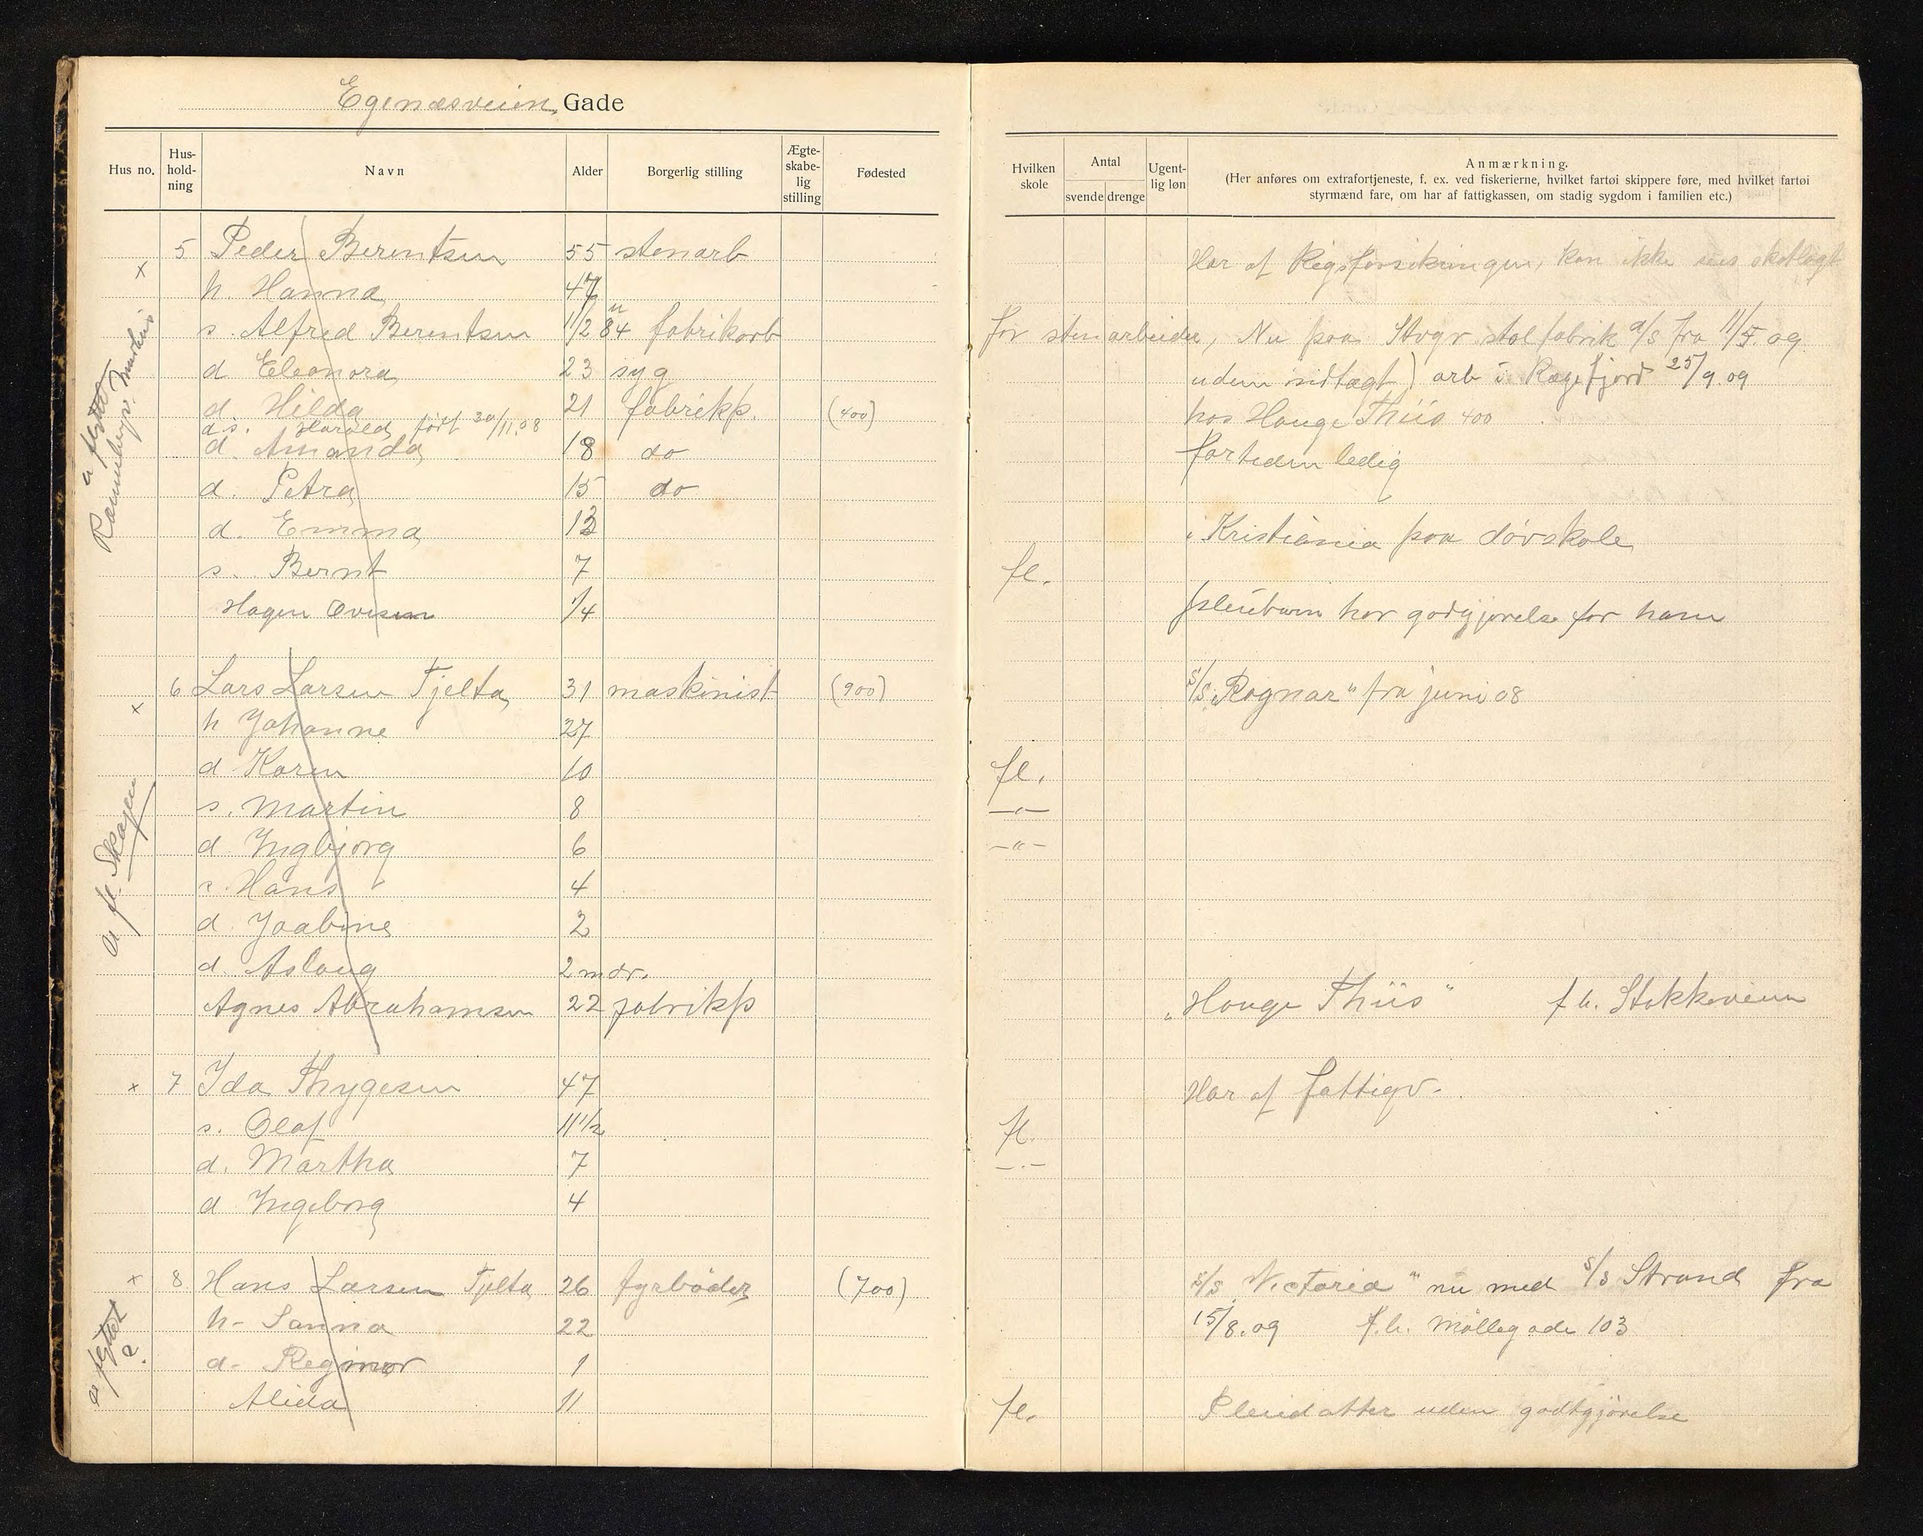 Egenæsveien Gade
Hus no. Hus-hold-ning Navn Alder Borgerlig stilling Ægte-skabe-lig stilling Fødested
Hvilken skole Antal svende drenge Ugent-lig løn Anmærkning.
(Her anføres om extrafortjeneste, f. ex. ved fiskerierne, hvilket fartøi skippere føre, med hvilket fartøi
styrmænd fare, om har af fattigkassen, om stadig sygdom i familien etc.)
x 5 Peder Berentsen 55 stenarb Har af Rigsforsikringen, kan ikke sees skatlagt
h. Hanna 47
s. Alfred Berentsen 1/2 84 fabrikarb for stenarbeider, Nu paa Stvgr stolfabrik a/s fra 11/5.09
d Eleonora 23 syg uden indtægt) arb i Rægefjord 25/9.09
d. Hilda 21 fabrikp. (400) hos Houge Thiis 400
d s. Harald, født 30/11.08
d. Amanda 18 do fortiden ledig
d. Petra 15 do
d. Emma 13 i Kristiania paa døvskole
s. Bernt 7 fl.
Hagen Ovesen 1/4 pleiebarn har godtgjørelse for ham
x 6 Lars Larsen Tjelta 31 maskinist (900) S/S. "Ragnar" fra juni 08
h Johanne 27
d Karen 10 fl.
s. Martin 8 —"—
d Ingbjorg 6 —"—
s. Hans 4
d. Jaabine 2
d. Aslaug 2 mdr.
Agnes Abrahamsen 22 fabrikp "Houge Thiis" f.h. Stokkeveien
x 7 Ida Thygesen 47 Har af fattigv.
s. Olaf 11 1/2 fl.
d. Martha 7 —"—
d Ingeborg 4
x 8 Hans Larsen Tjelta 26 fyrbøder (700) S/S. "Victoria" nu med S/S Strand fra
h. Sanna 22 15/8.09 f.h. Møllegade 103
d. Regmor 1
Alida 11 fl. Pleiedatter uden godtgjørelse
a flyttet
a fl. Skagen
a flyttet
?